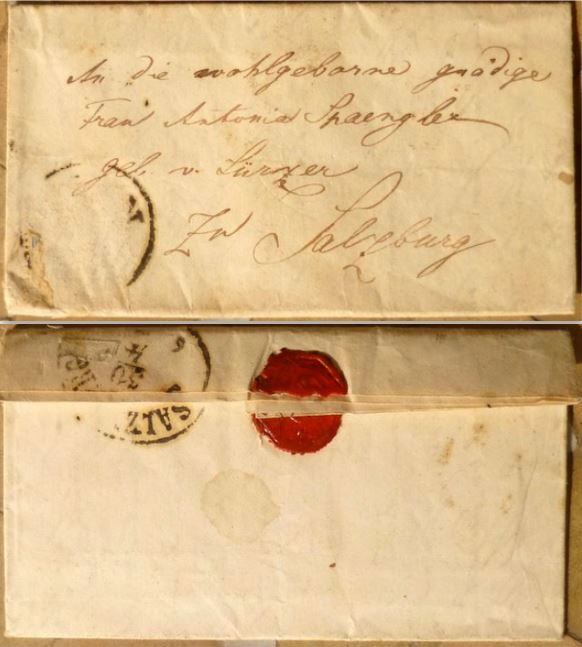 An die wohlgeborne gnädige
Frau Antonia Spaengler
geb. v. Lürzer
Zu Salzburg
SALZ